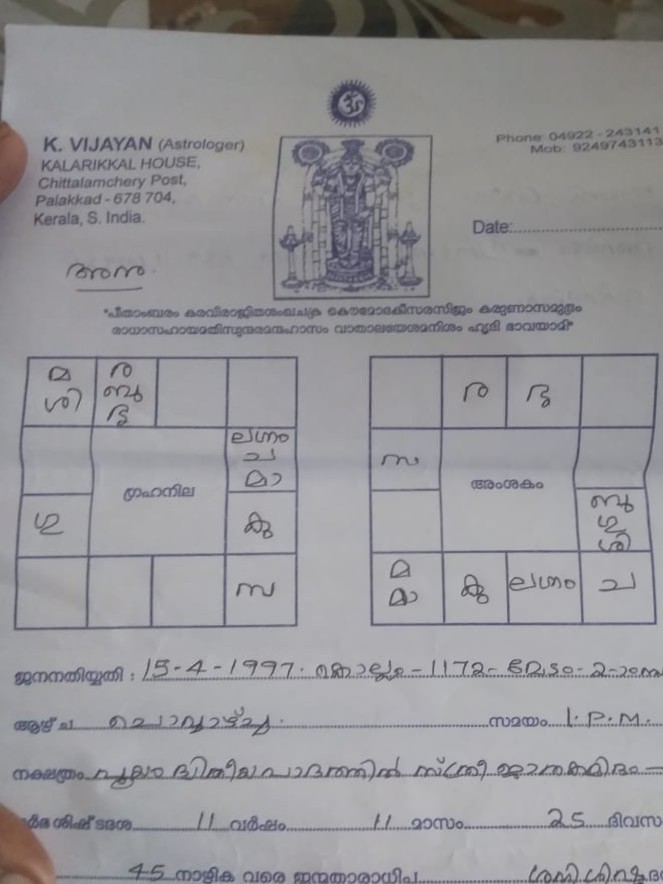 ॐ
K. VIJAYAN (Astrologer)
KALARIKKAL HOUSE,
Chittalamchery Post,
Palakkad - 678 704,
Kerala, S. India.
Phone: 04922 - 243141
Mob: 9249743113
Date:
അനു
"പീതാംബരം കരവിരാജിതശംഖചക്ര കൌമോദകീസരസിജം കരുണാസമുദ്രം
രാധാസഹായമതിസുന്ദരമന്ദഹാസം വാതാലയേശമനിശം ഹൃദി ഭാവയാമി"
മ ശി
ര ബു ശു
ലഗ്നം ച മാ
ഗ്രഹനില
ഗു
കു
സ
ര
ശു
സ
അംശകം
ബു ഗു ശി
മ മാ
കു
ലഗ്നം
ച
ജനനതിയ്യതി : 15-4-1997. കൊല്ലം - 1172 - മേടം - 2-ാം
ആഴ്ച ചൊവ്വാഴ്ച. സമയം 1. P.M.
നക്ഷത്രം പൂയം ദ്വിതീയ പാദത്തിൽ സ്ത്രീ ജാതകമിദം
11 വർഷം 11 മാസം 25 ദിവസ
45 നാഴിക വരെ ജന്മതാരാധിപ